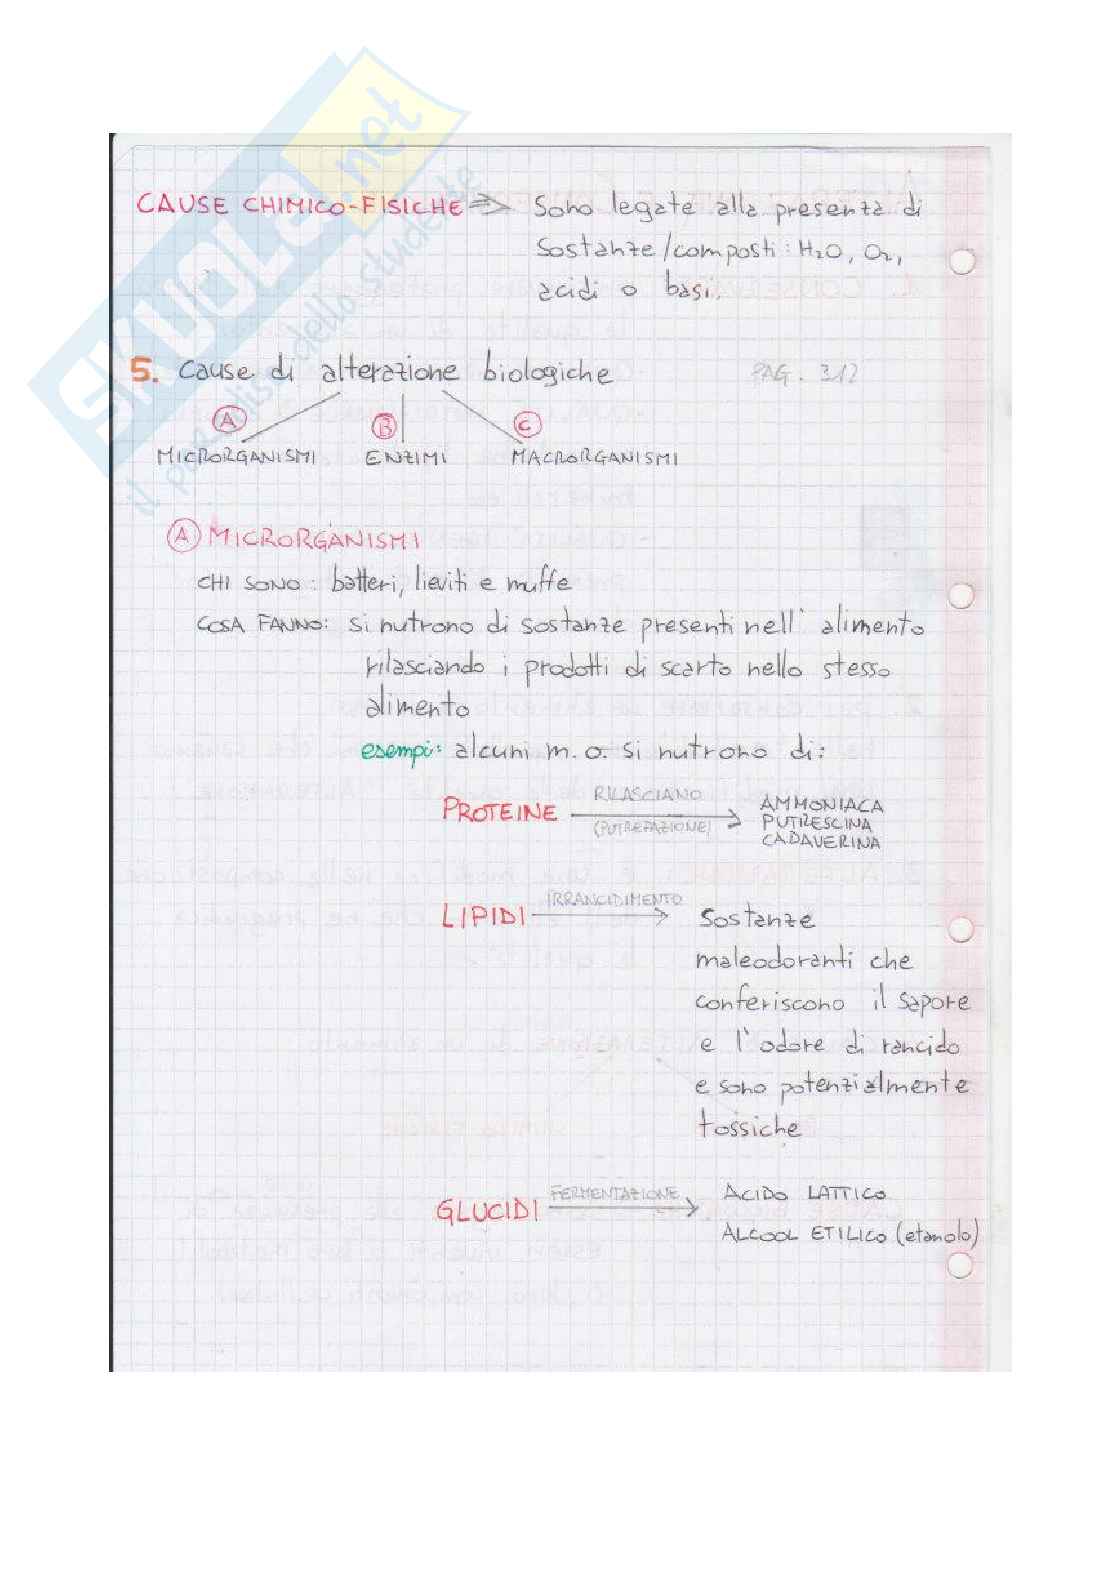 SKUOLA.net
il paradiso dello studente
CAUSE CHIMICO-FISICHE => Sono legate alla presenza di
sostanze/composti: H2O, O2,
acidi o basi.
5. Cause di alterazione biologiche PAG. 312
A B C
MICRORGANISMI ENZIMI MACRORGANISMI
A MICRORGANISMI
CHI SONO: batteri, lieviti e muffe
COSA FANNO: si nutrono di sostanze presenti nell' alimento
rilasciando i prodotti di scarto nello stesso
alimento
esempi: alcuni m.o. si nutrono di:
PROTEINE RILASCIANO (PUTREFAZIONE) → AMMONIACA
PUTRESCINA
CADAVERINA
LIPIDI IRRANCIDIMENTO → Sostanze
maleodoranti che
conferiscono il sapore
e l'odore di rancido
e sono potenzialmente
tossiche
GLUCIDI FERMENTAZIONE → ACIDO LATTICO
ALCOOL ETILICO (etanolo)